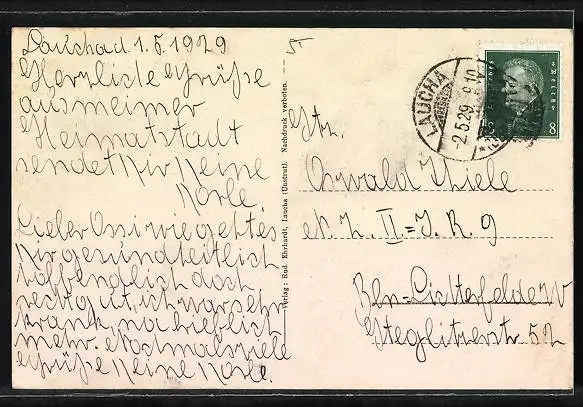 Lauchad 1.5.1929
Herzliche Grüße
aus meiner
Heimatstadt
sendet Dir Deine
Lieber Ossi wie geht es
Dir gesundheitlich
hoffendlich doch
recht gut, ich war sehr
krank, nach
mehr. Nochmals viele
Grüße Deine
Verlag: Rud. Ehrhardt, Laucha (Unstrut). Nachdruck verboten.
LAUCHA
2.5.29. 9-10
8
Oswald Thiele
II = J. R. 9
Bln=Lichterfelde W
Steglitzerstr. 52